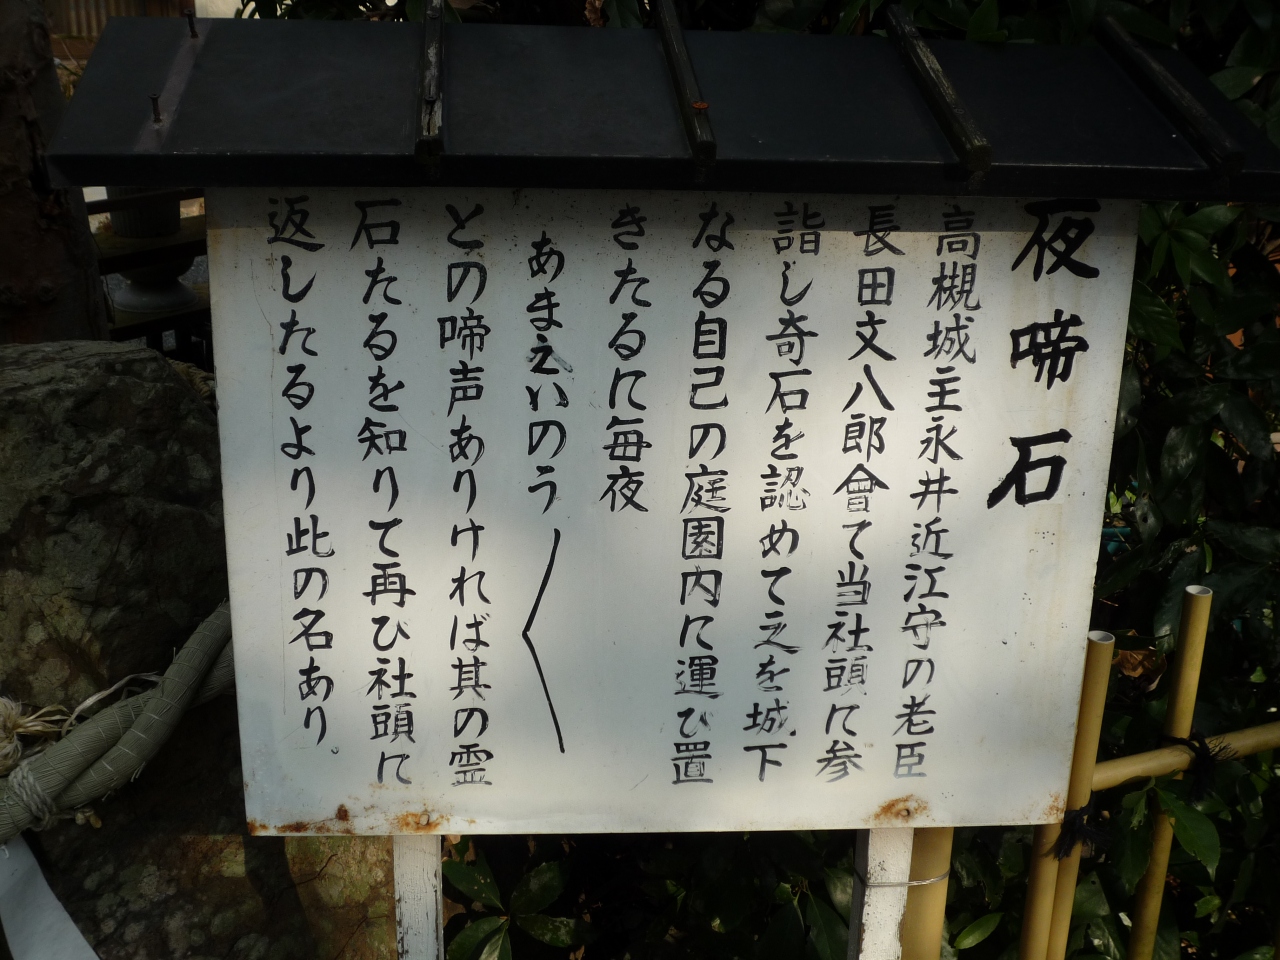 夜啼石
高槻城主永井近江守の老臣
長田文八郎會て当社頭に参
詣し奇石を認めて之を城下
なる自己の庭園内に運び置
きたるに毎夜
あまえいのう〱
との啼声ありければ其の霊
石たるを知りて再び社頭に
返したるより此の名あり。